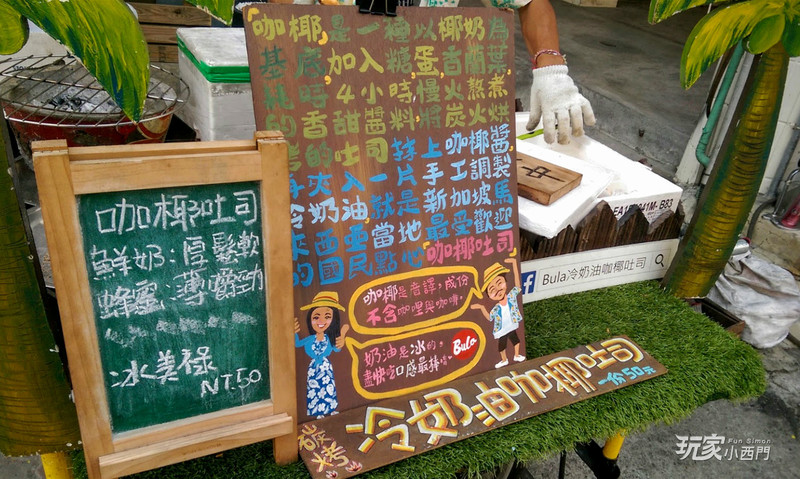 咖椰吐司
鮮奶:厚鬆軟
蜂蜜:薄嚼勁
冰美祿
NT.50
「咖椰」是一種以椰奶為
基底,加入糖,蛋,香蘭葉,
耗時4小時慢火熬煮
的香甜醬料,將炭火烘
烤的吐司抹上咖椰醬
再夾入一片手工調製
冷奶油就是新加坡馬
來西亞當地最受歡迎
的國民點心「咖椰吐司」
咖椰是音譯,成份
不含咖哩與咖啡,
奶油是冰的,
盡快吃口感最棒哦
Bulo
碳烤
冷奶油咖椰吐司
一份50元
Bula冷奶油咖椰吐司
玩家
Fun Simon
小西門